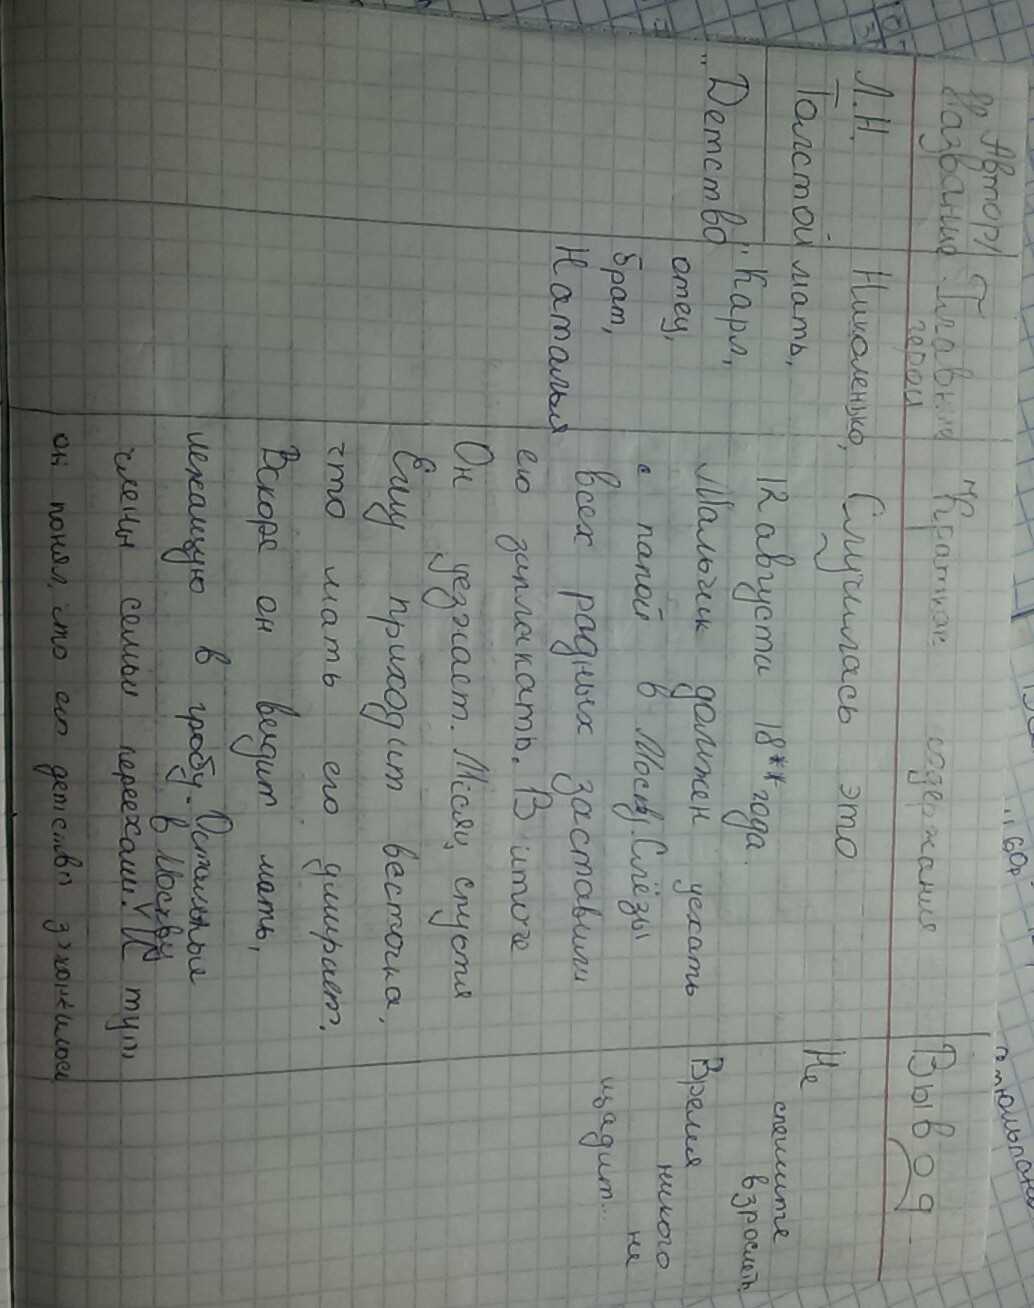 Автор/
Название
Главные
герои
Краткое содержания
Вывод
Л.Н.
Толстой
"Детство"
Николенька,
мать,
Карл,
отец,
брат,
Наталья
Случилась это
12 августа 18** года.
Мальчик должен уехать
с папой в Москву. Слёзы
всех родных заставили
его заплакать. В итоге
Он уезжает. Месяц спустя
Ему приходит весточка,
что мать его умирает.
Вскоре он видит мать,
лежащую в гробу. Остальные
члены семьи переехали. в Москву И тут
он понял, что его детство закончилось
Не спешите
взрослеть
Время никого
не щадит...